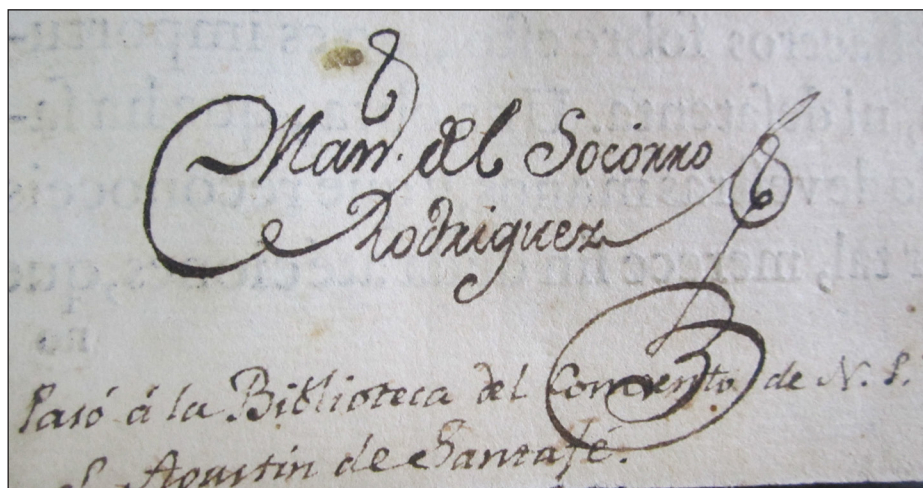 Man. del Socorro
Rodriguez
Pasó á la Biblioteca del Convento de N. P.
S. Agustin de Santafé.